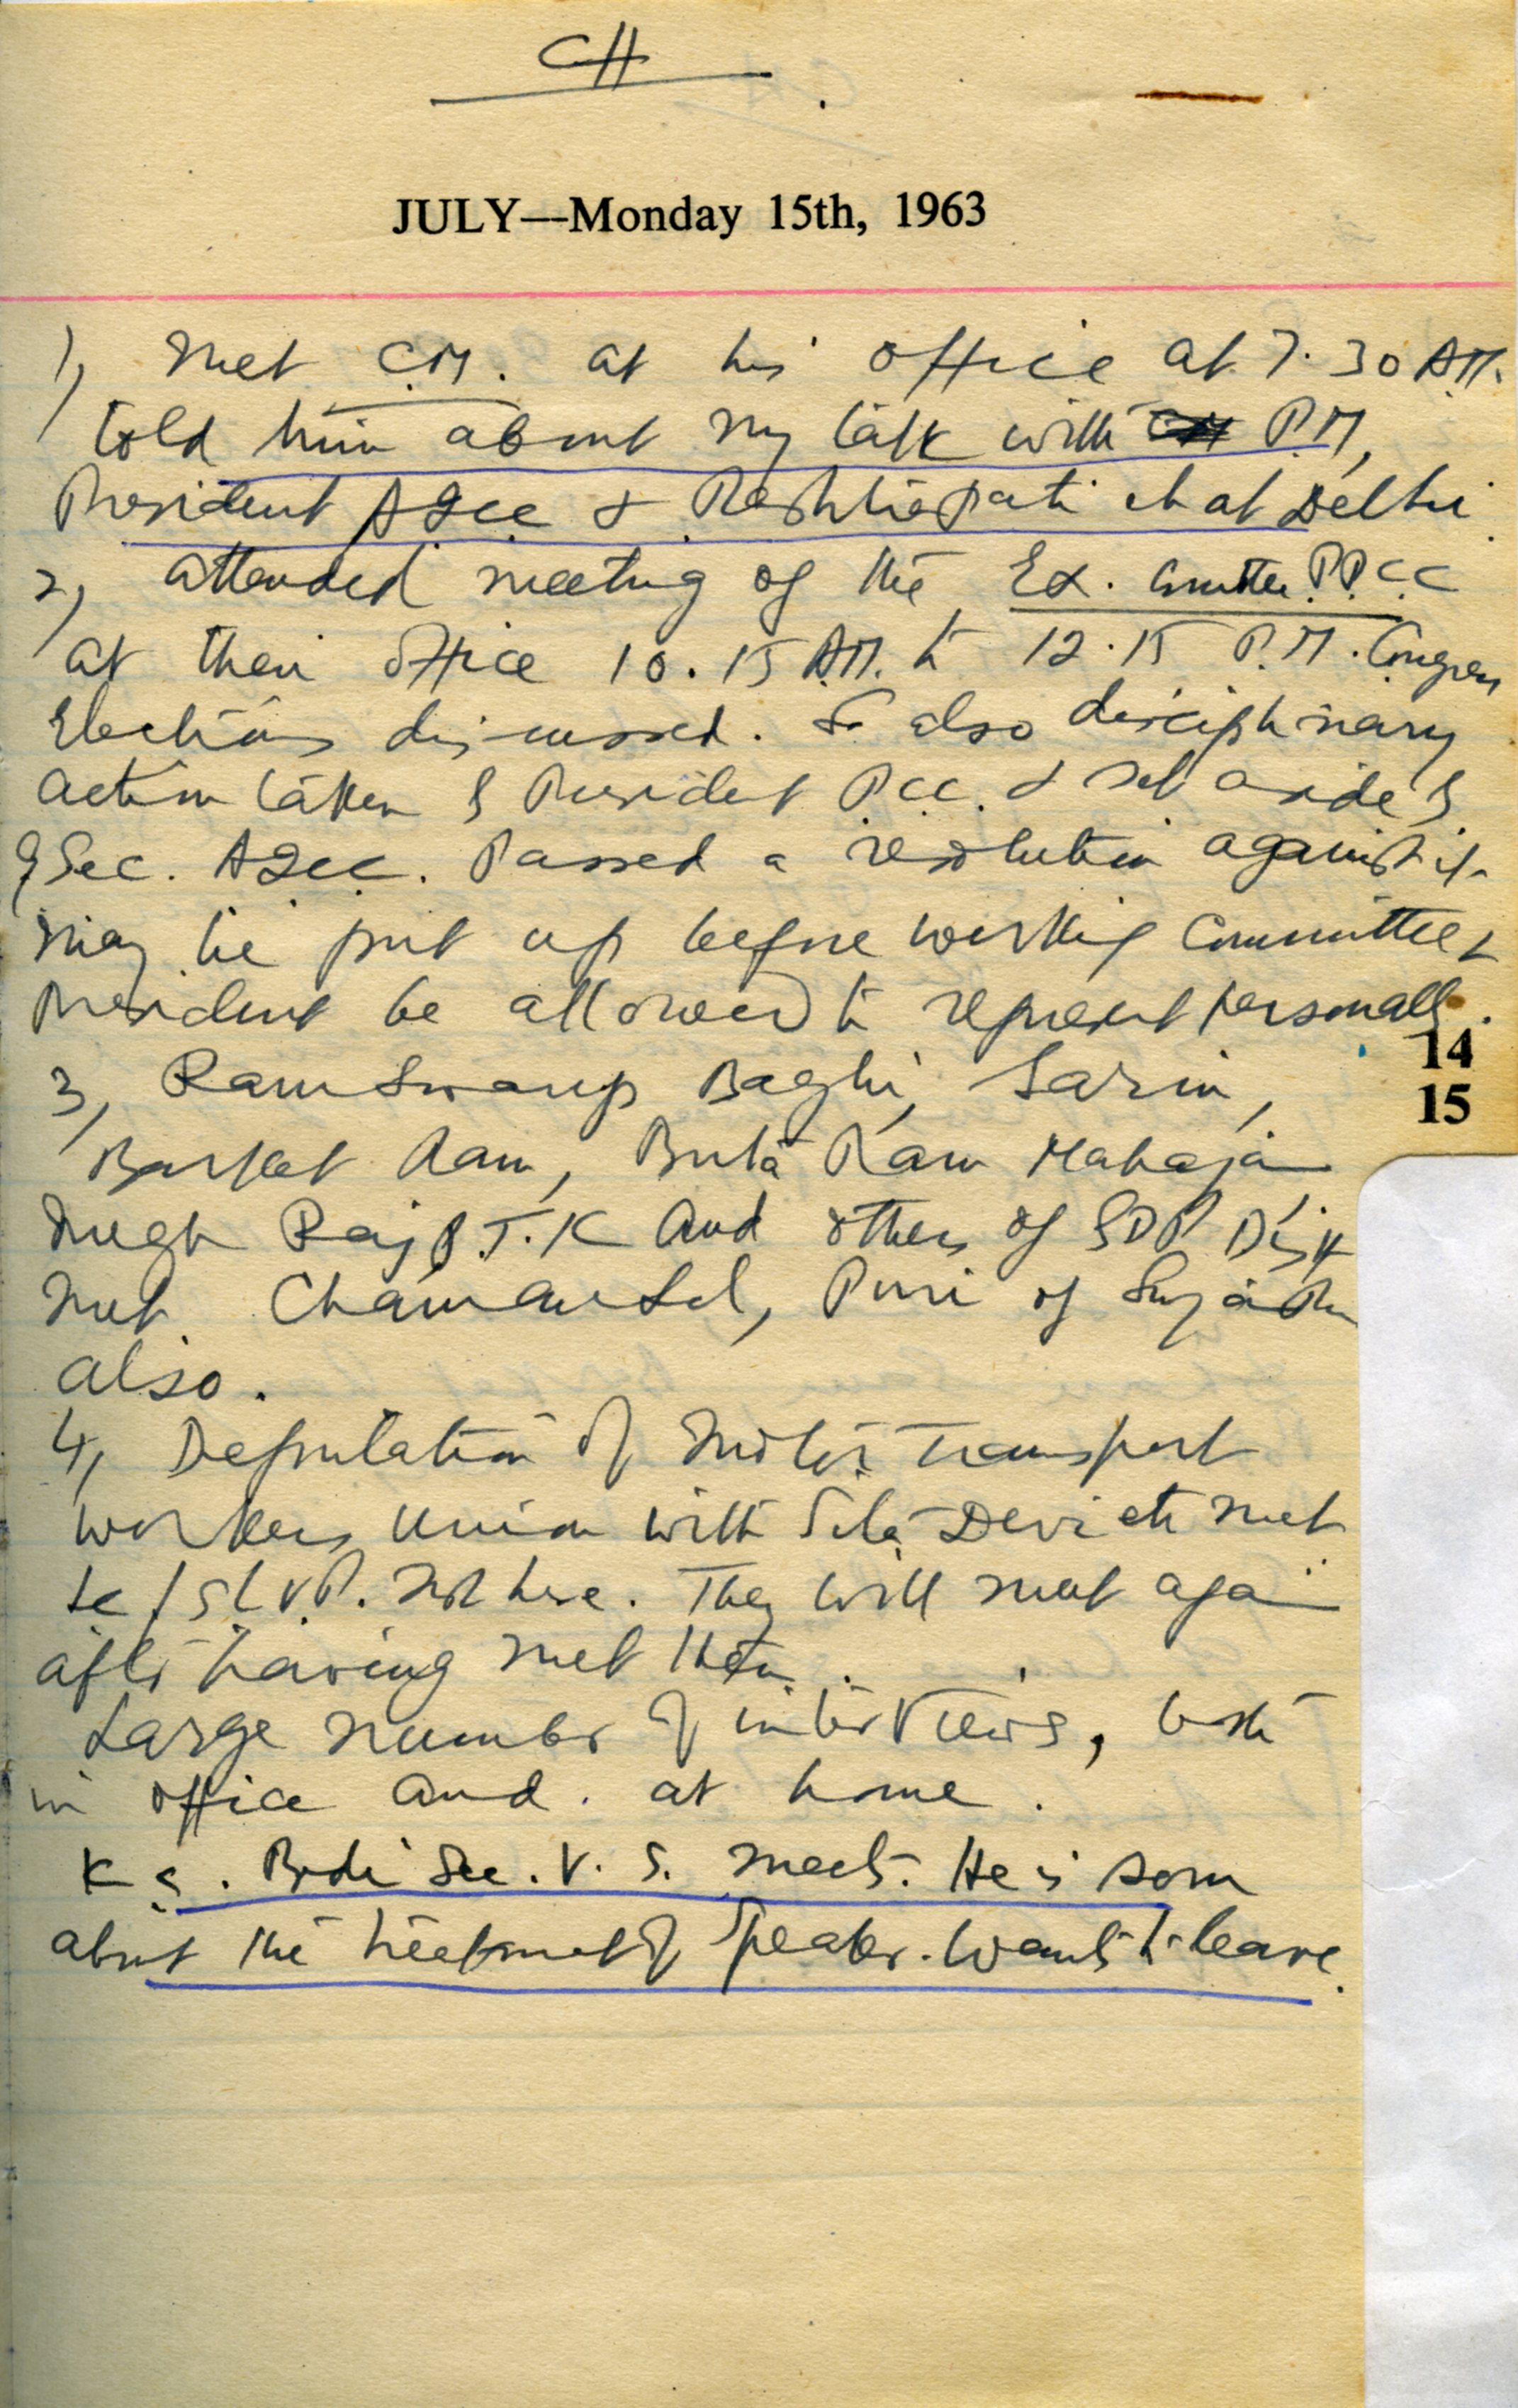 CH
JULY—Monday 15th, 1963
1, Met C.M. at his office at 7.30 A.M.
told him about my talk with P.M,
President AICC & Rashtrapati et at Delhi
2, attended meeting of the Ex. Cmttee P.P.C.C
at their office 10.15 A.M. to 12.15 P.M. Congress
Elections discussed. So also disciplinary
action taken by President PCC. & set aside by
G Sec. AICC. Passed a resolution against it.
may be put up before working Committee &
President be allowed to represent personally.
14
3, Ram Swarup Baghi, Sarin,
15
Barkat Ram, Buta Ram Mahajan
Megh Raj P.T.K and others of GDP Distt
met. Chaman Lal, Puri of
also.
4, Deputation of Motor Transport
workers Union with Sita Devi etc met
Not here. They will meet again
after having met them.
Large number of interviews, both
in office and. at home.
K S. Bedi Sec. V. S. meets. He is
about the treatment of Speaker. Wants to leave.